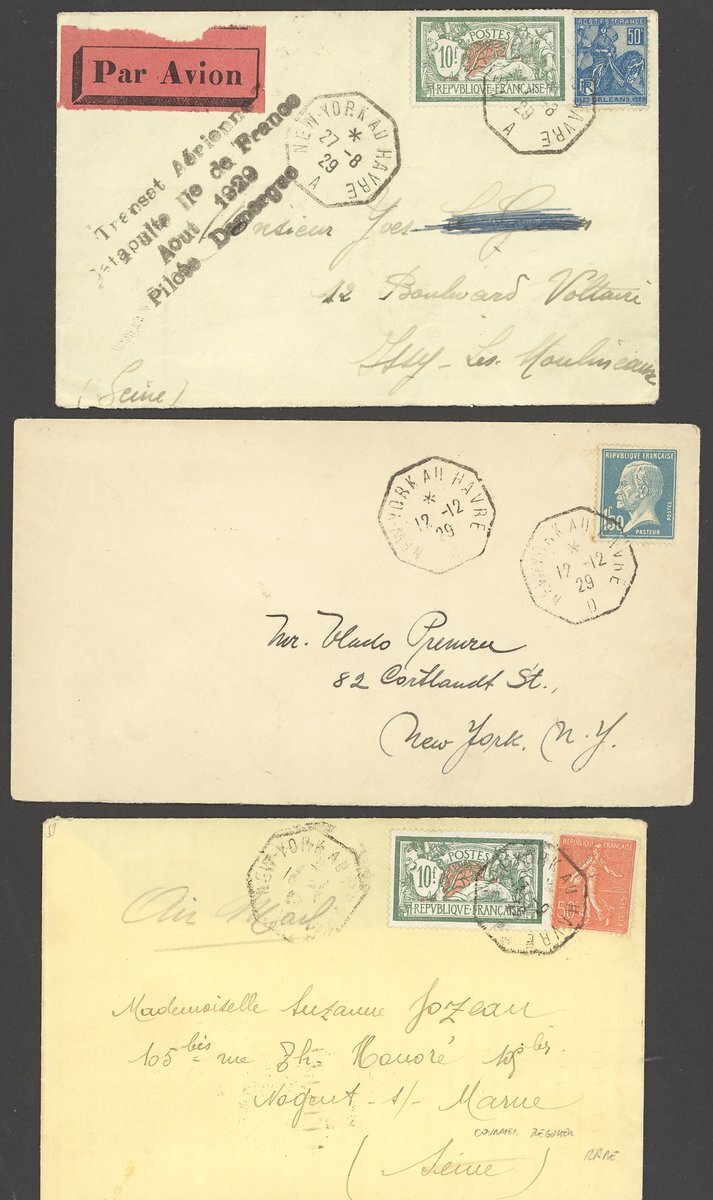 Par Avion
POSTES
10f
REPVBLIQVE FRANÇAISE
POSTES FRANCE
50c
RF
ORLEANS
NEW-YORK AU HAVRE
27-8
29
A
-8
29
A
HAVRE
Transat Aérienne
Catapulte Ile de France
Aout 1929
Pilote Demargue
Monsieur Yves
12 Boulevard Voltaire
Issy-Les-Moulineaux
(Seine)
REPVBLIQVE FRANÇAISE
1F50
POSTES
PASTEUR
NEW-YORK AU HAVRE
12-12
29
D
NEW-YORK AU HAVRE
12-12
29
D
Mr. Vlado
82 Cortlandt St.,
New York, N.Y.
POSTES
10f
REPVBLIQVE FRANÇAISE
REPUBLIQUE FRANÇAISE
POSTES
NEW-YORK AU
YORK AU HAVRE
Air Mail
Mademoiselle Suzanne Jozeau
105 bis rue Th. Honoré 105 bis
Nogent-s/-Marne
(Seine)